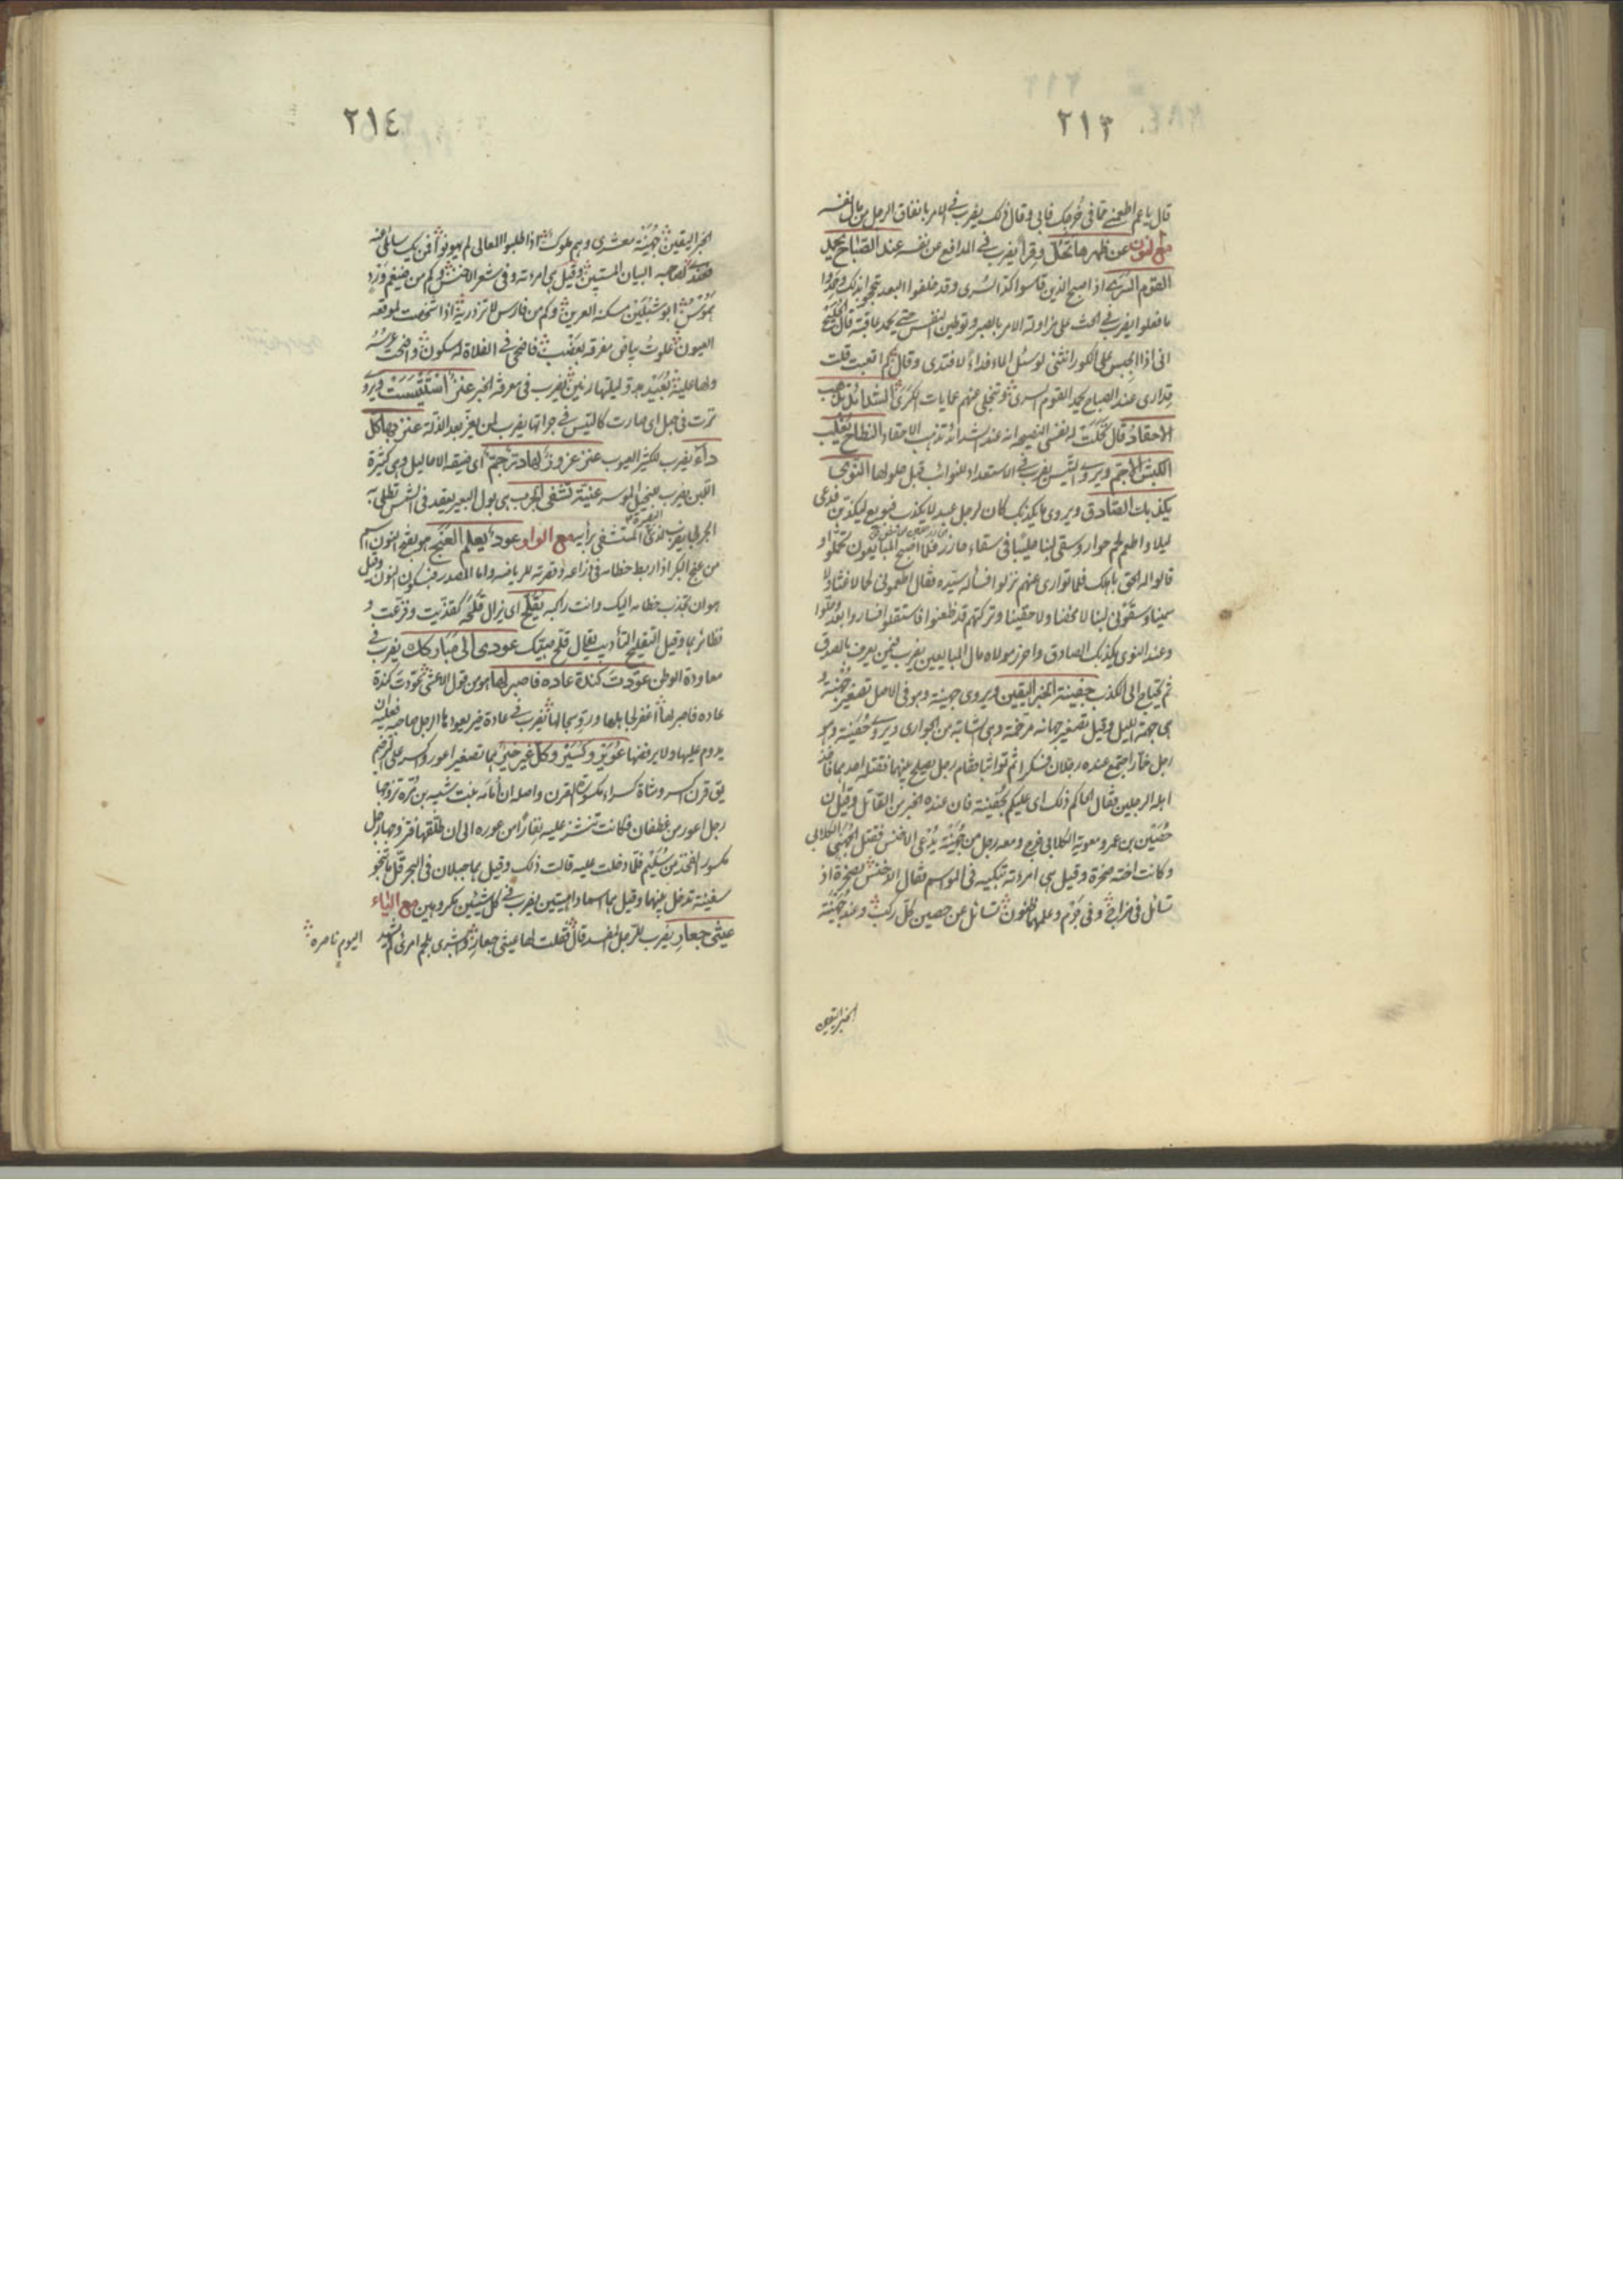 ٢١٣
قال يا عم اطعمنى مما فى خرجك فابى وقال ذلك يضرب فى الامر بانفاق الرجل من مال نفسه
مع النون عن ظهرها تحل وقرا يضرب فى الدافع عن نفسه عند الصباح يحمد
القوم السرى اذا اصبح الذين قاسوا كد السرى وقد خلفوا البعد تبجحوا بذلك وحمدوا
ما فعلوا يضرب فى الحث على مزاولة الامر بالصبر وتوطين النفس حتى يحمد عاقبته قال
انى اذا الجبس على الكور انثنى لو سئل الماء فداء لافتدى وقال كم اتعبت قلت
قدارى عند الصباح يحمد القوم السرى وتنجلى عنهم عمايات الكرى الشدائد تذهب
الاحقاد قال له نفسى النصيحة انه عند الشدائد تذهب الاحقاد النطاح يغلب
الكبش الاجم ويروى التيس يضرب فى الاستعداد للنوائب قبل حلولها النوى
يكذبك الصادق ويروى ما يكذبك كان لرجل عبد لا يكذب فبويع ليكذبن فدعى
ليلا واطعم لحم حوار وسقى لبنا حليبا فى سقاء حازر فلما اصبح المبايعون تحملوا و
قالوا له الحق باهلك فلما توارى عنهم نزلوا فسأله سيده فقال اطعمونى لحما لا غثا ولا
سمينا وسقونى لبنا لا محضا ولا حقينا وتركتهم قد ظعنوا فاستقلوا فساروا بعد وحلوا
وعند النوى يكذبك الصادق واحرز مولاه مال المبايعين يضرب فيمن يعرف بالصدق
ثم يحتاج الى الكذب جفينة الخبر اليقين ويروى جهينة وهو فى الاصل تصغير جهنة و
هى جهمة الليل وقيل تصغير جهانة مرخمة وهى الشابة من الجوارى ويروى حفينة وهو
رجل خمار اجتمع عنده رجلان فسكرا ثم تواثبا فقام رجل يصلح بينهما فقتله احدهما فاخذ
اهله الرجلين فقال الحاكم ذلك اى عليكم بجفينة فان عنده الخبر من القاتل وقيل ان
حصين بن عمرو معوية الكلابى خرج ومعه رجل من جهينة يدعى الاخنس فقتل الجهنى الكلابى
وكانت اخته صخرة وقيل هى امرءته تبكيه فى المواسم فقال الاخنس بصخرة اذ
تسائل فى مراح وفى جرم وعلمهما ظنون تسائل عن حصين كل ركب وعند جهينة
الخبر اليقين
٢١٤
الخبر اليقين جهينة معشرى وهم ملوك اذا طلبوا المعالى لم يهونوا فمن يك سائلا عنه
فعندى لصاحبه البيان المستبين وقيل هى امرءته وفى شعر الاخنس وكم من ضيغم ورد
هموس ابو شبلين مسكنه العرين وكم من فارس لا تزدريه اذا شخصت لموقعه
العيون علوت بياض مفرقه بعضب فاضحى فى الفلاة له سكون واضحت عرسه
ولها عليه بعيد هدو ليلتها رنين يضرب فى معرفة الخبر عنز استتيست ويروى
نزت فى جبل اى صارت كالتيس فى جراتها يضرب لمن يعز بعد الذلة عنز بها كل
داء يضرب للكثير العيوب عنز عزوز لها در جم اى ضيقة الاحاليل وهى كثيرة
اللبن يضرب للبخيل الموسر عنية تشفى الجرب هى بول البعير يعقد فى الشمس تطلى به
الجربى يضرب للذى المستشفى برأيه مع الواو عود يعلم العنج هو بفتح النون اسم
من عنج البكر اذا ربط خطامه فى ذراعه وقصره للرياضه واما المصدر فبسكون النون وقيل
هو ان تجذب خطامه اليك وانت راكبه يقلح اى يزال قلحه كقذيت وقرعت و
نظائرهما وقيل التقليح التأديب يقال قلح صبيك عودى الى مباركك يضرب فى
معاودة الوطن عودت كندة عاده فاصبر لها هو من قول الاعشى عودت كندة
عادة فاصبر لها اغفر لجاهلها ورو سجالها يضرب فى عادة خير يعودها الرجل صاحبه فعليه ان
يدوم عليها ولا يرفضها عوير وكسير وكل غير خير هما تصغير اعور وكسر على الترخيم
يق قرن اكسر وشاة كسراء مكسورة القرن واصله ان أمامة بنت شيبه بن مرة تزوجها
رجل اعور من غطفان فكانت تنشز عليه نفارا من عوره الى ان طلقها فتزوجها رجل
مكسور الفخذ من سليم فلما دخلت عليه قالت ذلك وقيل هما جبلان فى البحر قل ما تنجو
سفينة تدخل بينهما وقيل هما اسما داهيتين يضرب فى كل شيئين مكروهين مع الياء
عيثى جعار يضرب للرجل المفسد قال فقلت لها عيثى جعار وابشرى بلحم امرئ لم يشهد اليوم ناصره